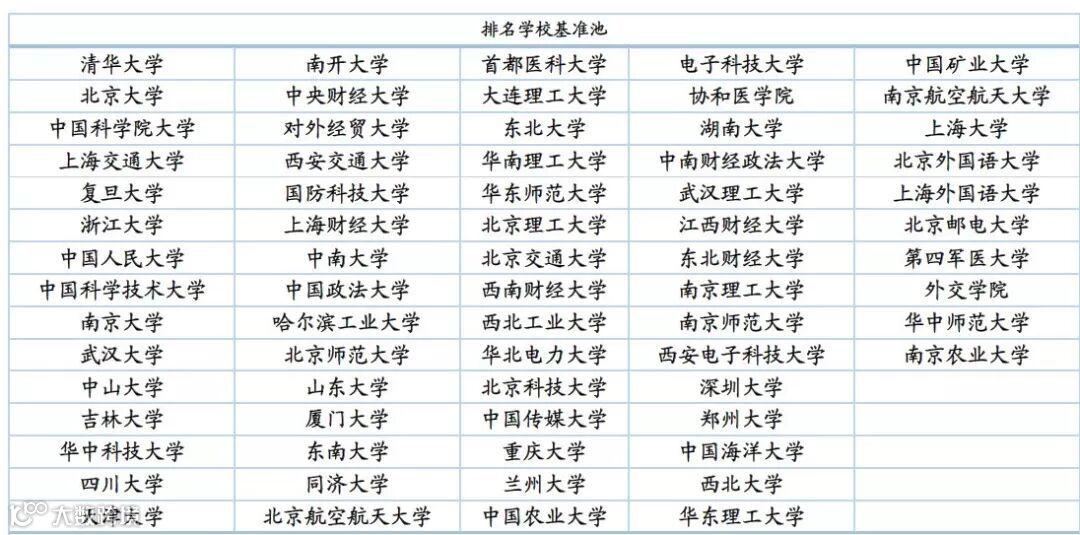 排名学校基准池
清华大学 南开大学 首都医科大学 电子科技大学 中国矿业大学
北京大学 中央财经大学 大连理工大学 协和医学院 南京航空航天大学
中国科学院大学 对外经贸大学 东北大学 湖南大学 上海大学
上海交通大学 西安交通大学 华南理工大学 中南财经政法大学 北京外国语大学
复旦大学 国防科技大学 华东师范大学 武汉理工大学 上海外国语大学
浙江大学 上海财经大学 北京理工大学 江西财经大学 北京邮电大学
中国人民大学 中南大学 北京交通大学 东北财经大学 第四军医大学
中国科学技术大学 中国政法大学 西南财经大学 南京理工大学 外交学院
南京大学 哈尔滨工业大学 西北工业大学 南京师范大学 华中师范大学
武汉大学 北京师范大学 华北电力大学 西安电子科技大学 南京农业大学
中山大学 山东大学 北京科技大学 深圳大学
吉林大学 厦门大学 中国传媒大学 郑州大学
华中科技大学 东南大学 重庆大学 中国海洋大学
四川大学 同济大学 兰州大学 西北大学
天津大学 北京航空航天大学 中国农业大学 华东理工大学